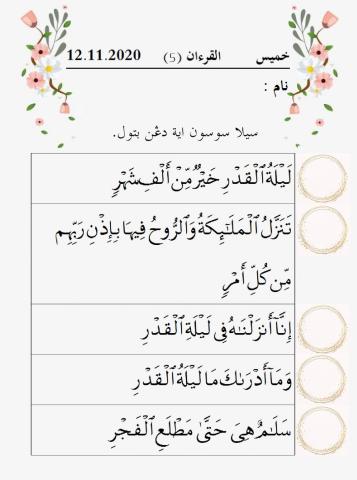 خميس القرءان (5) 12.11.2020
نام :
سيلا سوسون اية دڠن بتول.
لَيْلَةُ ٱلْقَدْرِ خَيْرٌ مِّنْ أَلْفِ شَهْرٍ
تَنَزَّلُ ٱلْمَلَٰٓئِكَةُ وَٱلرُّوحُ فِيهَا بِإِذْنِ رَبِّهِم
مِّن كُلِّ أَمْرٍ
إِنَّآ أَنزَلْنَٰهُ فِى لَيْلَةِ ٱلْقَدْرِ
وَمَآ أَدْرَىٰكَ مَا لَيْلَةُ ٱلْقَدْرِ
سَلَٰمٌ هِىَ حَتَّىٰ مَطْلَعِ ٱلْفَجْرِ